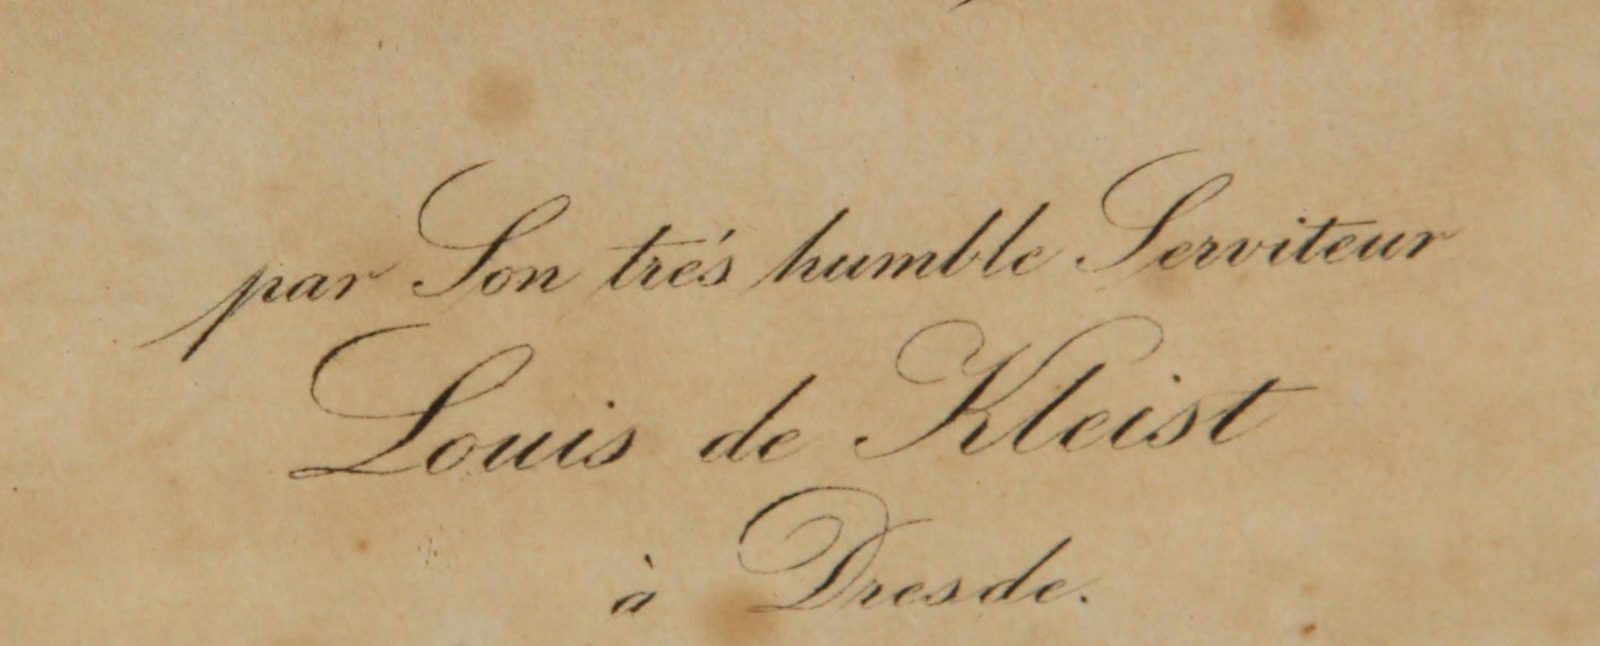 par Son trés humble Serviteur
Louis de Kleist
à Dresde.